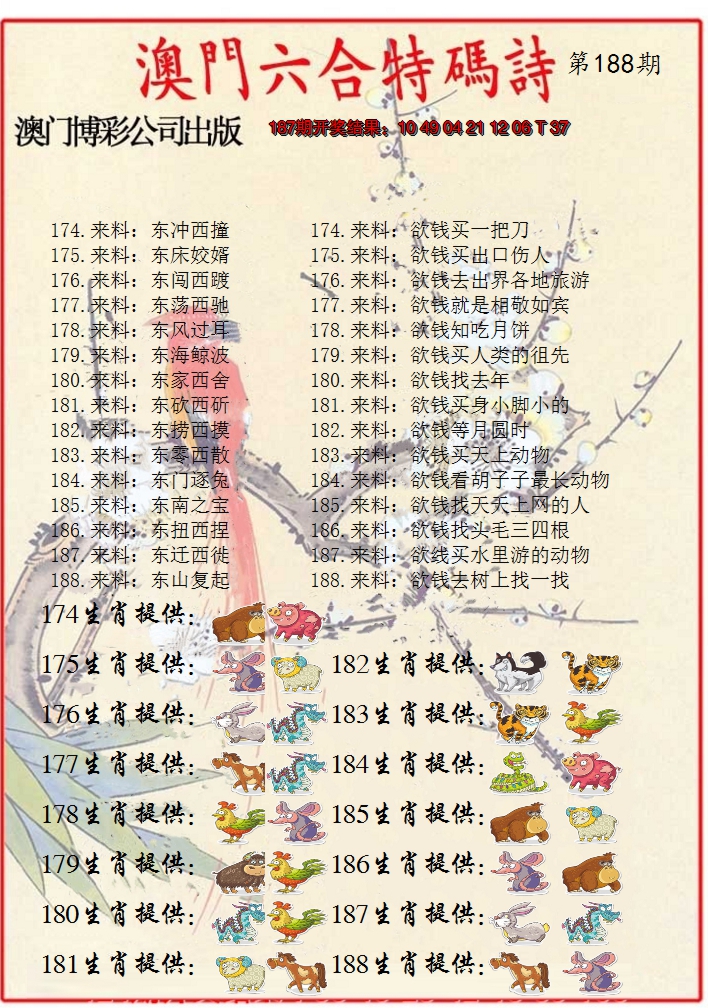 澳門六合特碼詩 第188期
澳门博彩公司出版 187期开奖结果：10 49 04 21 12 06 T 37
174.来料：东冲西撞 174.来料：欲钱买一把刀
175.来料：东床姣婿 175.来料：欲钱买出口伤人
176.来料：东闯西踱 176.来料：欲钱去出界各地旅游
177.来料：东荡西驰 177.来料：欲钱就是相敬如宾
178.来料：东风过耳 178.来料：欲钱知吃月饼
179.来料：东海鲸波 179.来料：欲钱买人类的祖先
180.来料：东家西舍 180.来料：欲钱找去年
181.来料：东砍西斫 181.来料：欲钱买身小脚小的
182.来料：东捞西摸 182.来料：欲钱等月圆时
183.来料：东零西散 183.来料：欲钱买天上动物
184.来料：东门逐兔 184.来料：欲钱看胡子子最长动物
185.来料：东南之宝 185.来料：欲钱找天天上网的人
186.来料：东扭西捏 186.来料：欲钱找头毛三四根
187.来料：东迁西徙 187.来料：欲线买水里游的动物
188.来料：东山复起 188.来料：欲钱去树上找一找
174生肖提供：
175生肖提供： 182生肖提供：
176生肖提供： 183生肖提供：
177生肖提供： 184生肖提供：
178生肖提供： 185生肖提供：
179生肖提供： 186生肖提供：
180生肖提供： 187生肖提供：
181生肖提供： 188生肖提供：